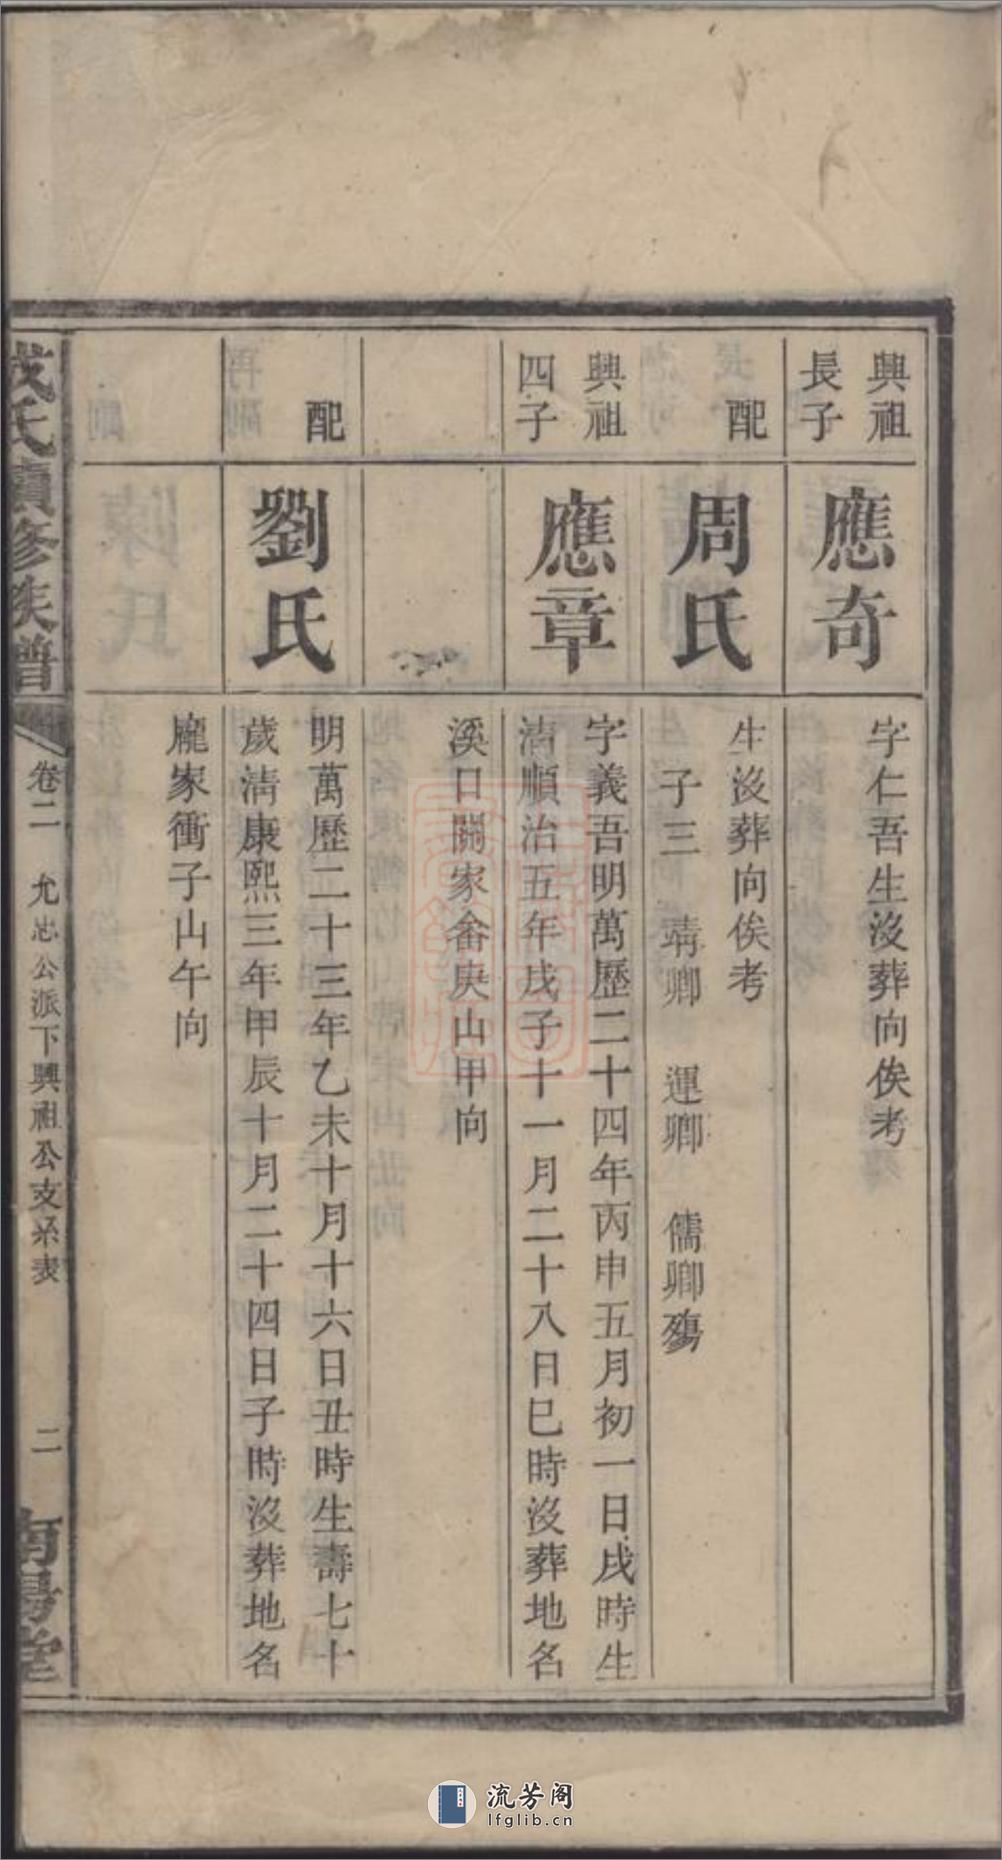 興祖
長子
應奇
字仁吾生沒葬向俟考
配
周氏
生沒葬向俟考
子三　靖卿　運卿　儒卿殤
興祖
四子
應章
字義吾明萬歷二十四年丙申五月初一日戌時生
清順治五年戌子十一月二十八日巳時沒葬地名
溪口關家畬庚山甲向
配
劉氏
明萬歷二十三年乙未十月十六日丑時生壽七十
歲清康熙三年甲辰十月二十四日子時沒葬地名
龐家衝子山午向
氏續修族譜
卷二　允忠公派下興祖公支系表
二
南陽堂
流芳阁
lfglib.cn